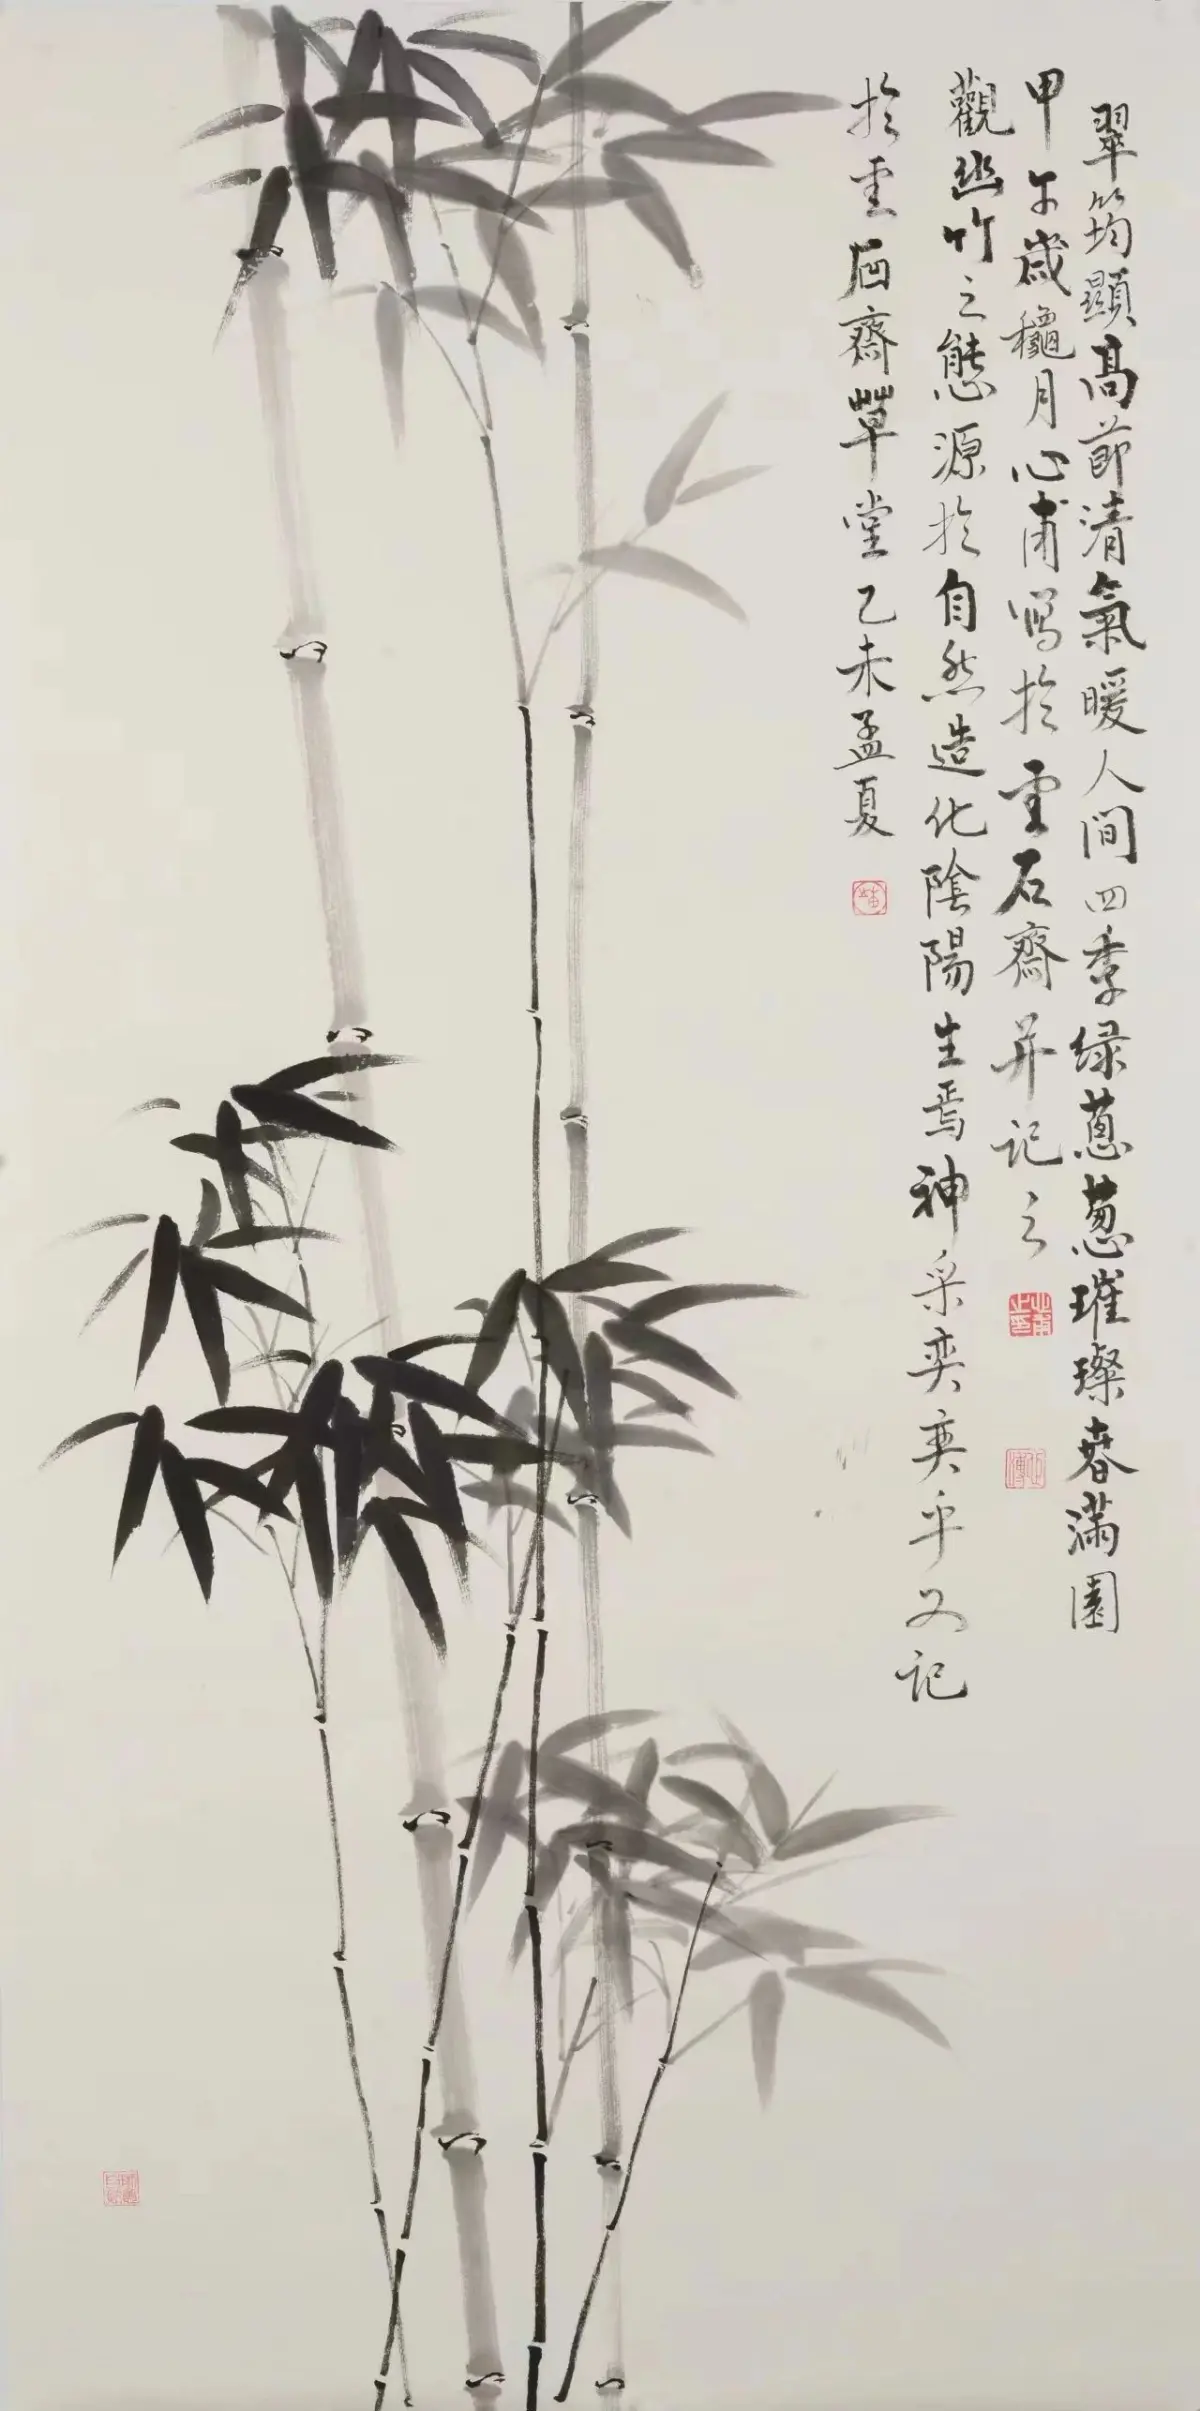 翠筠顯高節清氣暖人间四季绿蔥葱璀璨春滿園
甲午歲龝月心甫寫於雲石齋并记之
觀幽竹之態源於自然造化陰陽生焉神采奕奕乎又记
於雲石齋草堂乙未孟夏